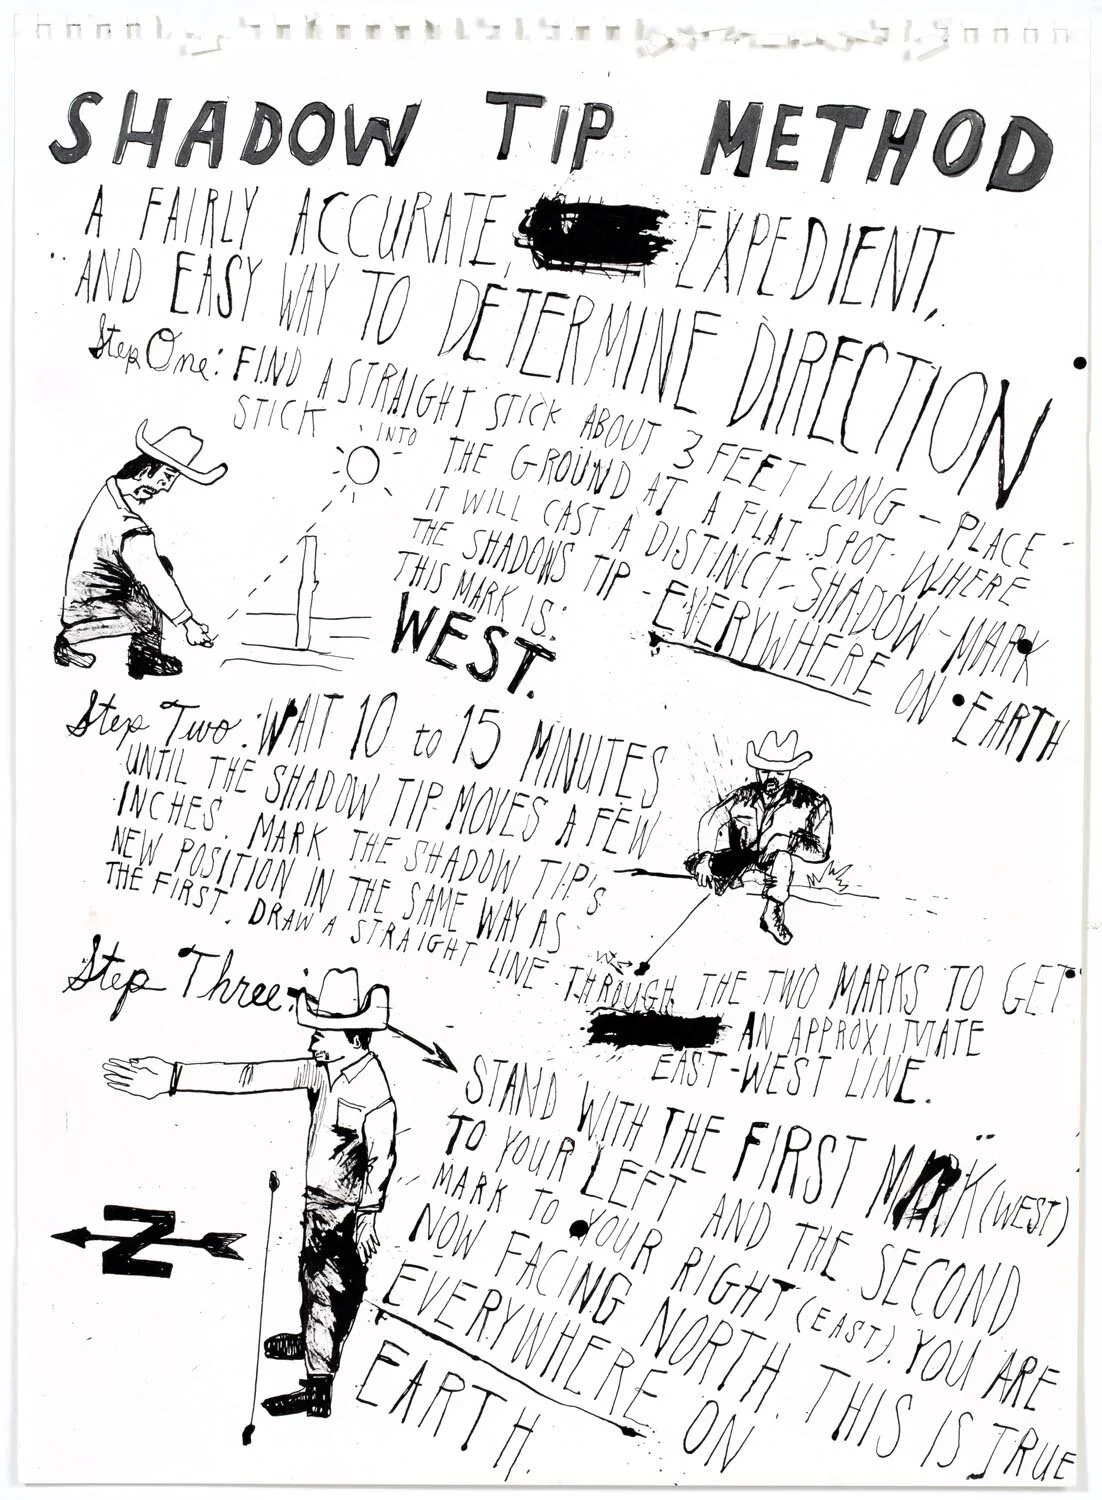 SHADOW TIP METHOD
A FAIRLY ACCURATE, EXPEDIENT,
AND EASY WAY TO DETERMINE DIRECTION
Step One: FIND A STRAIGHT STICK ABOUT 3 FEET LONG - PLACE
STICK INTO THE GROUND AT A FLAT SPOT WHERE
IT WILL CAST A DISTINCT SHADOW - MARK
THE SHADOWS TIP - EVERYWHERE ON EARTH
THIS MARK IS:
WEST.
Step Two: WAIT 10 to 15 MINUTES
UNTIL THE SHADOW TIP MOVES A FEW
INCHES. MARK THE SHADOW TIP'S
NEW POSITION IN THE SAME WAY AS
THE FIRST. DRAW A STRAIGHT LINE THROUGH THE TWO MARKS TO GET
AN APPROXIMATE
EAST-WEST LINE.
Step Three:
STAND WITH THE FIRST MARK (WEST)
TO YOUR LEFT AND THE SECOND
MARK TO YOUR RIGHT (EAST). YOU ARE
NOW FACING NORTH. THIS IS TRUE
EVERYWHERE ON
EARTH.
N